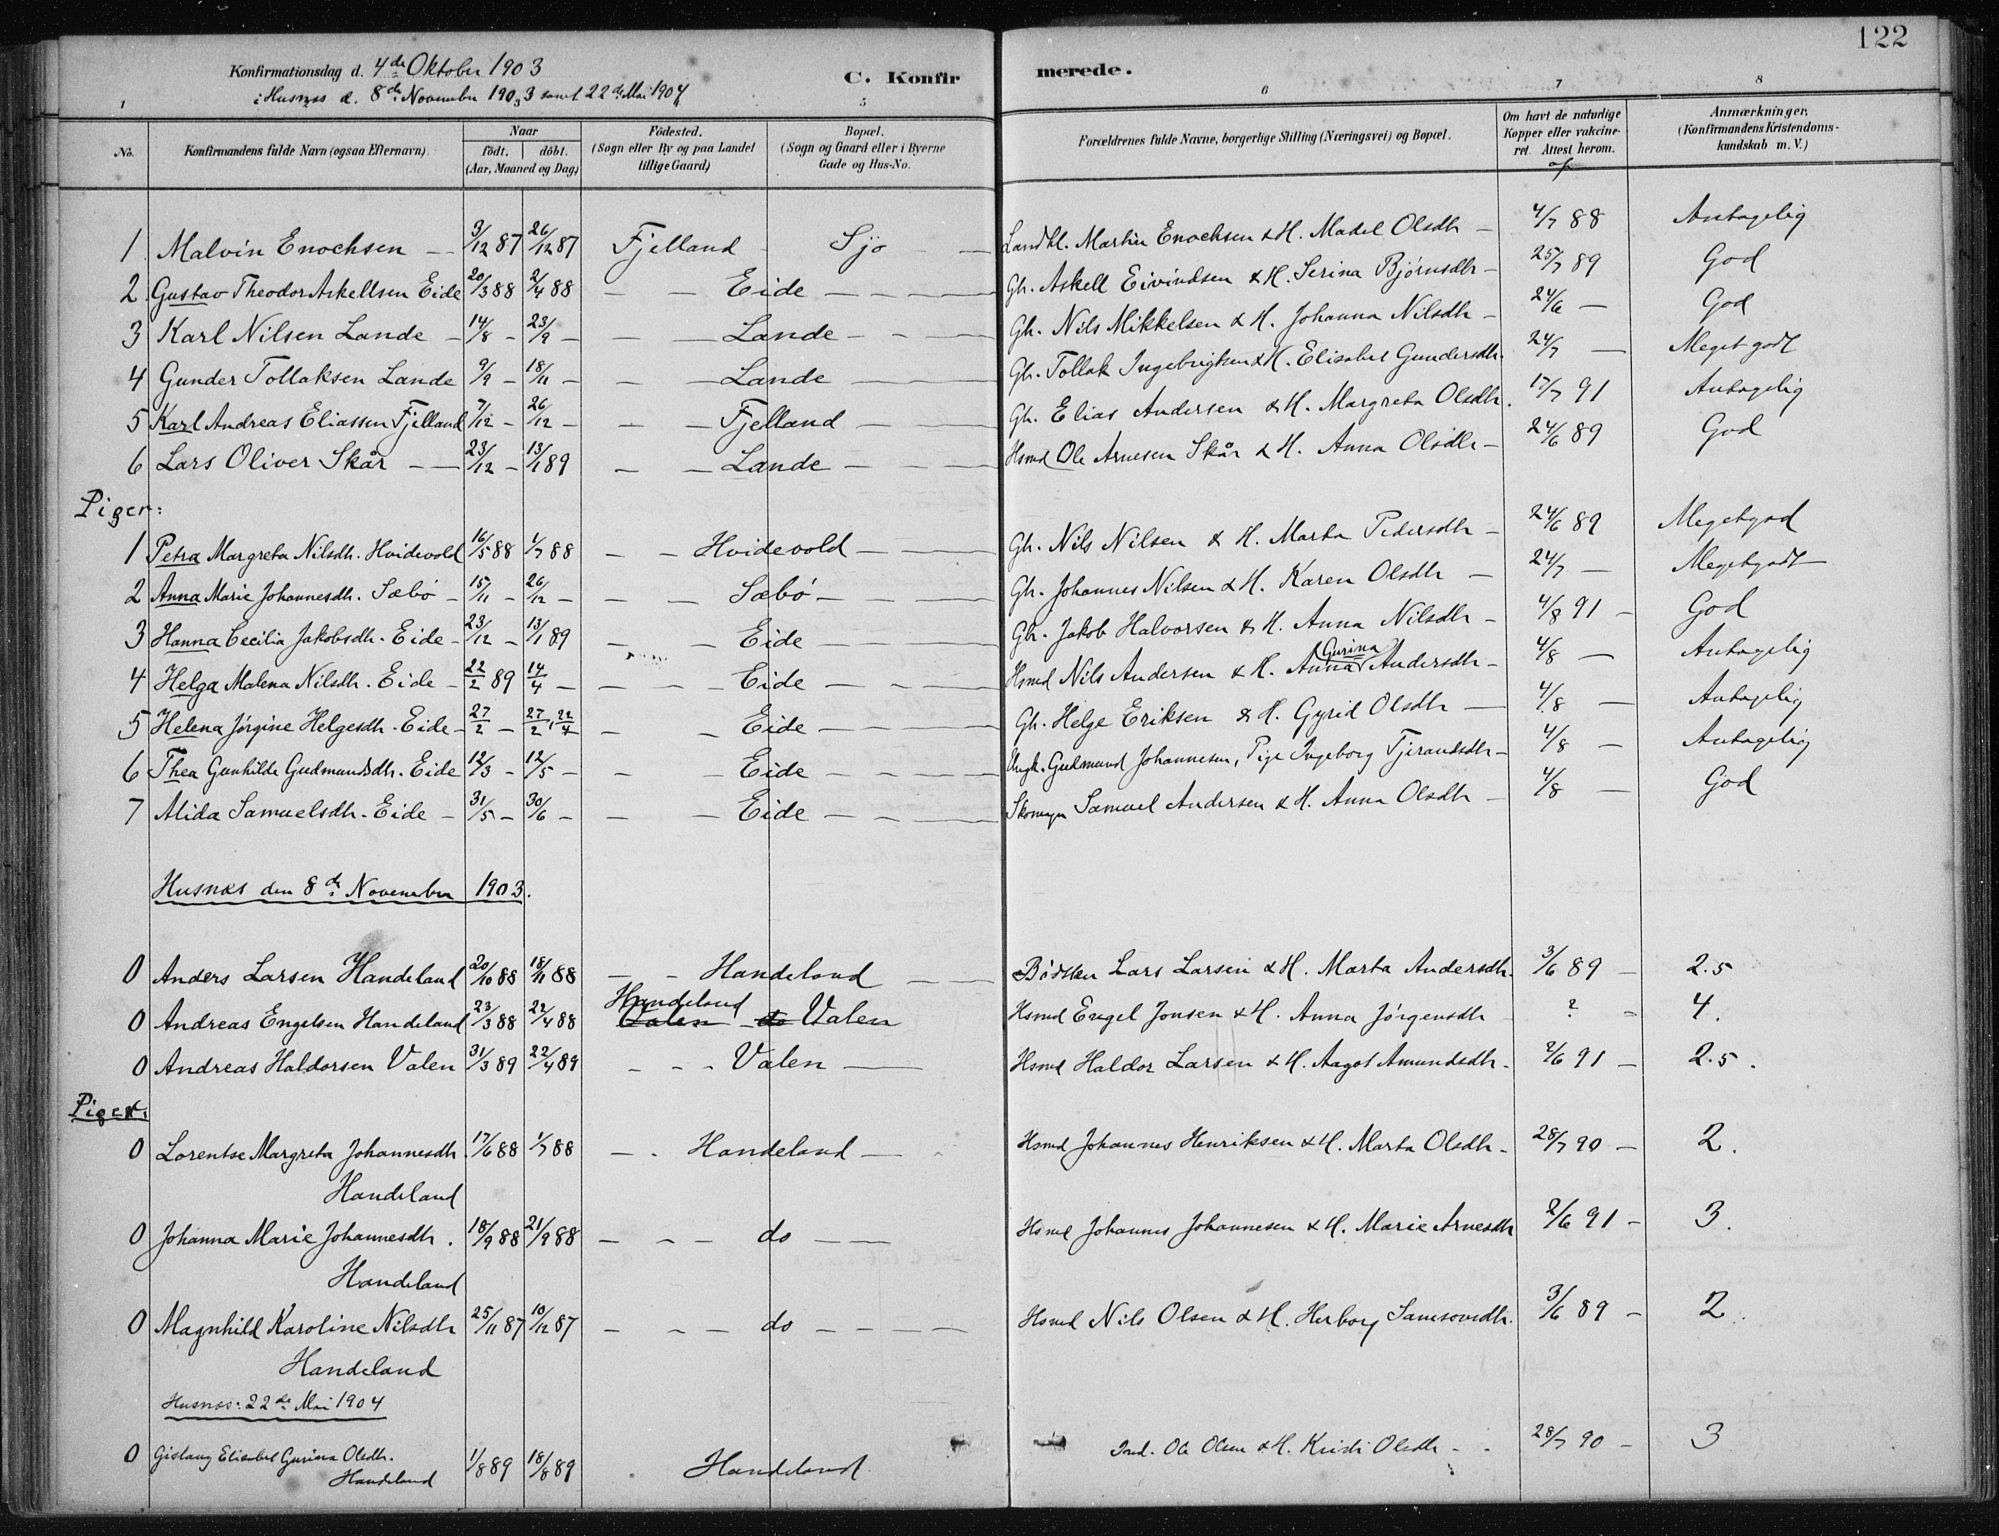 122
Konfirmationsdag d. 4de Oktober 1903
i Husnæs d. 8de November 1903 samt 22de Mai 1904
C. Konfirmerede.
1 5 6 7 8
No. Konfirmandens fulde Navn (ogsaa Efternavn). Naar født. døbt. (Aar, Maaned og Dag) Fødested. (Sogn eller By og paa Landet tillige Gaard) Bopæl. (Sogn og Gaard eller i Byerne Gade og Hus-No. Forældrenes fulde Navne, borgerlige Stilling (Næringsvei) og Bopæl. Om havt de naturlige Kopper eller vakcineret. Attest herom. Anmærkninger. (Konfirmandens Kristendomskundskab m. V.)
1 Malvin Enochsen — 3/12 87 26/12 87 Fjelland Sjo — Landhl. Martin Enochsen & H. Madel Olsdtr — 4/7 88 Antagelig
2 Gustav Theodor Askellsen Eide 20/3 88 2/4 88 — — Eide — Gbr. Askell Eivindsen & H. Serina Bjørnsdtr — 25/7 89 God
3 Karl Nilsen Lande — 14/8 — 23/9 — — — Lande — Gbr. Nils Mikkelsen & H. Johanna Nilsdtr — 24/6 — God
4 Gunder Tollaksen Lande 9/9 — 18/11 — — — Lande — Gbr. Tollak Ingebrigtsen & H. Elisabet Gundersdtr. 24/7 — Meget godt
5 Karl Andreas Eliassen Fjelland 7/12 — 26/12 — — — Fjelland — Gbr. Elias Andersen & H. Margreta Olsdtr. 17/7 91 Antagelig
6 Lars Oliver Skår — 23/12 — 13/1 89 — — Lande — Hsmd Ole Arnesen Skår & H. Anna Olsdtr — 24/6 89 God
Piger:
1 Petra Margreta Nilsdtr. Hvidevold 16/5 88 1/7 88 — — Hvidevold — Gbr. Nils Nilsen & H. Marta Pedersdtr — 24/6 89 Megetgod
2 Anna Marie Johannesdtr. Sæbø — 15/11 — 26/12 — — — Sæbø — Gbr. Johannes Nilsen & H. Karen Olsdtr — 24/7 — Megetgodt
3 Hanna Cecilia Jakobsdtr. Eide — 23/12 — 13/1 89 — — Eide — Gbr. Jakob Halvorsen & H. Anna Nilsdtr — 4/8 91 — God
4 Helga Malena Nilsdtr. Eide — 22/2 89 14/4 — — — Eide — Hsmd Nils Andersen & H. Anna Gurina Andersdtr — 4/8 — Antagelig
5 Helena Jørgine Helgesdtr. Eide — 27/2 — 27/2, 22/4 — — Eide — Gbr. Helge Eriksen & H. Gyrid Olsdtr — 4/8 — Antagelig
6 Thea Gunhilde Gudmundsdtr. Eide 12/3 — 12/5 — — — Eide — Ungk. Gudmund Johannesen, Pige Ingeborg Tjerandsdtr — 4/8 — Antagelig
7 Alida Samuelsdtr. Eide — 31/5 — 30/6 — — — Eide — Skomager Samuel Andersen & H. Anna Olsdtr — 4/8 — God
Husnæs den 8de November 1903.
0 Anders Larsen Handeland 20/10 88 18/11 88 — — Handeland — Lars Larsen & H. Marta Andersdtr. 3/6 89 — 2.5
0 Andreas Engelsen Handeland 23/3 88 22/4 88 Handeland Valen do Valen Hsmd Engel Jonsen & H. Anna Jørgensdtr ? " 4.
0 Andreas Haldorsen Valen 31/3 89 22/4 89 — — Valen — Hsmd Haldor Larsen & H. Aagot Amundsdtr. 2/6 91 — 2.5.
Piger:
0 Lorentse Margreta Johannesdtr. 17/6 88 1/7 88 — Handeland — Hsmd Johannes Henriksen & H. Marta Olsdtr — 28/7 90 — 2.
Handeland
0 Johanna Marie Johannesdtr. 18/9 88 21/9 88 — — — do — Hsmd Johannes Johannesen & H. Marie Arnesdtr 2/6 91 — 3.
Handeland
0 Magnhild Karoline Nilsdtr 25/11 87 10/12 87 — — — do — Hsmd Nils Olsen & H. Herborg Samsonsdtr. 3/6 89 — 2.
Handeland
Husnæs: 22de Mai 1904
0 Gislaug Elisabet Gurina Olsdtr. 1/8 89 18/8 89 Handeland Ind. Ole Olsen & H. Kristi Olsdtr — 28/7 90 — 3
Handeland